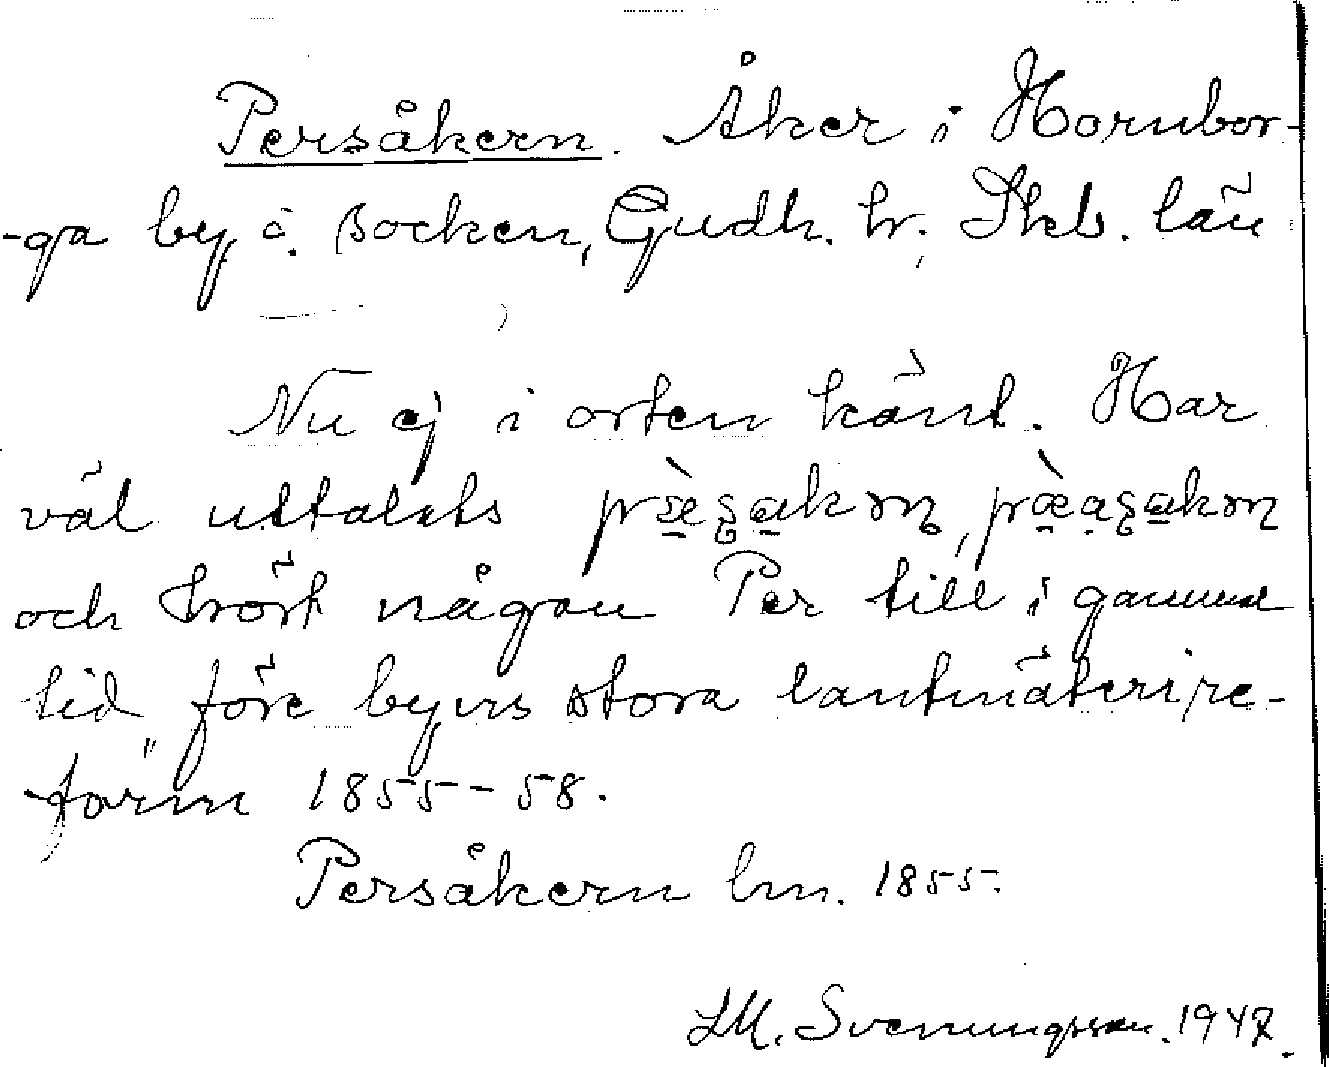 Persåkern. Åker i Hornbor-
-ga by o. socken, Gudh. hr. Skb. län
Nu ej i orten känt. Har
väl uttalats
och hört någon Per till i gammal
tid, före byns stora lantmäterire-
form 1855-58.
Persåkern lm. 1855.
SM. Svenungsson. 1947.